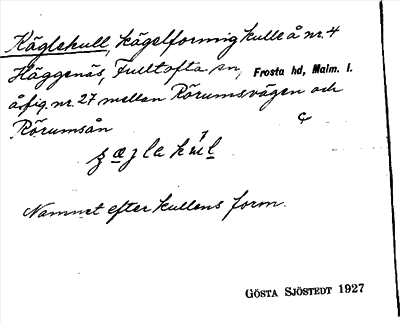 Käglekull, kägelformig kulle å nr. 4
Häggenäs, Fulltofta sn, Frosta hd, Malm. l.
å fig. nr. 27 mellan Rörumsvägen och
Rörumsån
Namnet efter kullens form.
GÖSTA SJÖSTEDT 1927